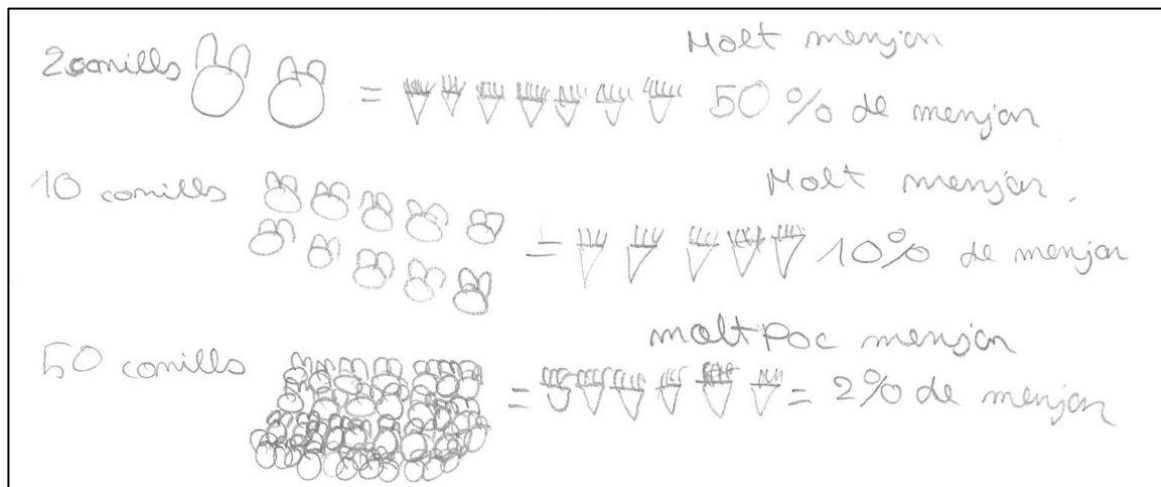 Molt menjar
2 conills = 50 % de menjar
Molt menjar.
10 conills = 10% de menjar
molt poc menjar
50 conills = = 2% de menjar